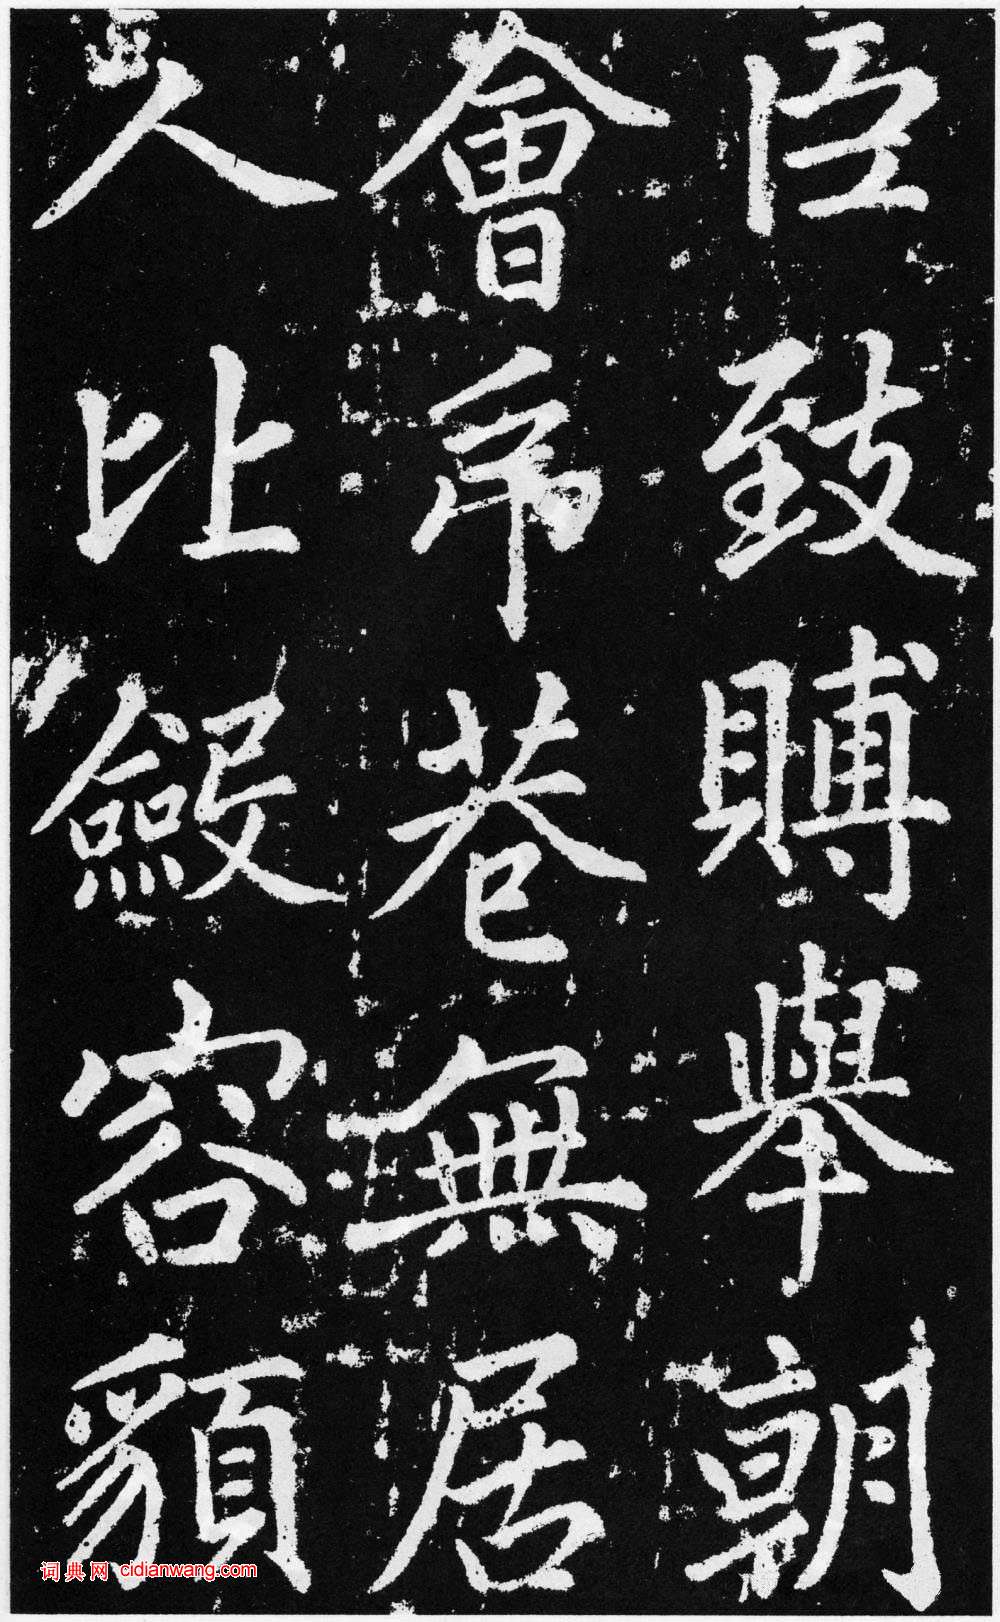 臣致賻舉朝
會弔巷無居
人比斂容䫉
词典网 cidianwang.com